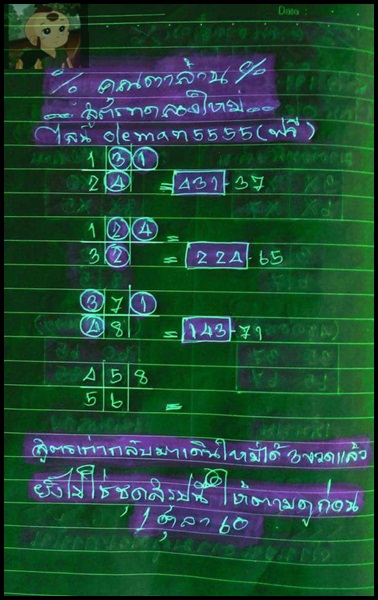 Date :
% คนตาล้าน %
สูตรทดลองใหม่
ไลน์ oleman5555 (ฟรี)
1 3 1
2 4 = 431-37
1 2 4 =
3 2 = 224-65
3 7 1
4 8 = 143-71
4 5 8
5 6 =
สูตรเก่ากลับมาเดินใหม่ได้ 3 งวดแล้ว
ยังไม่ใช่ชุดสรุปนะ ให้ตามดูก่อน
1 ตุลา 60